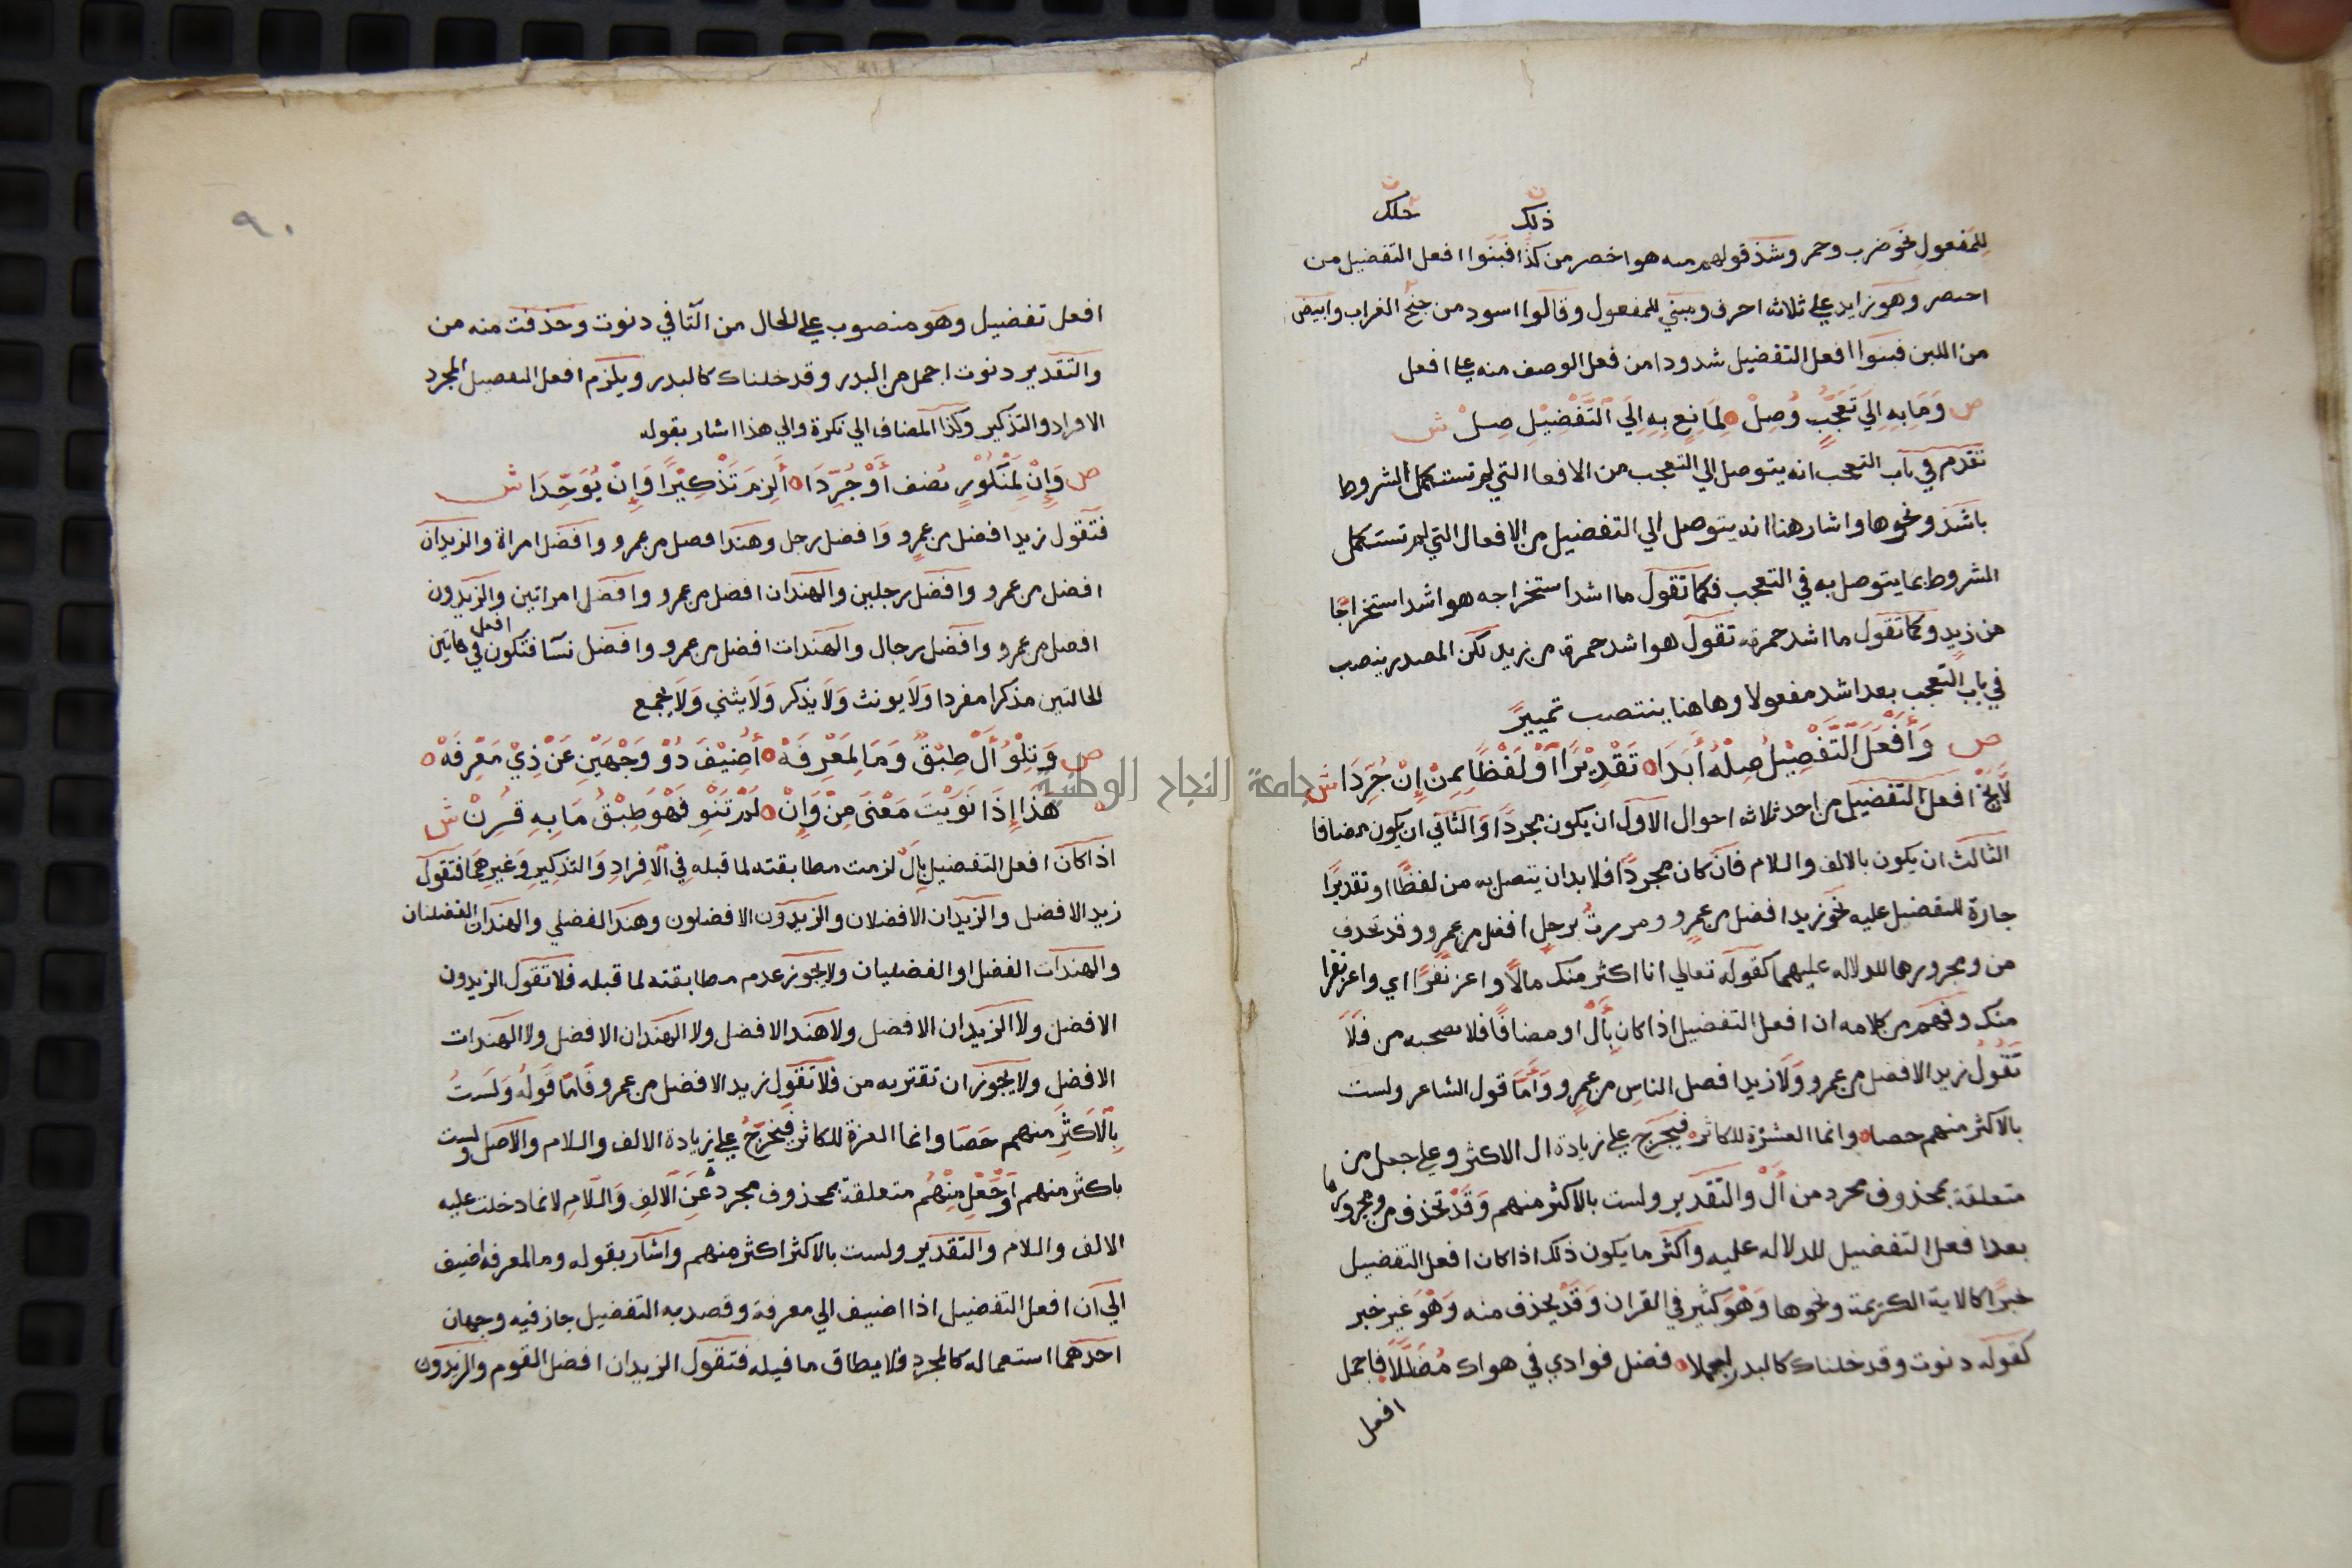 ذلك حلك
للمفعول نحو ضرب وحمر وشذ قولهم منه هو اخصر من كذا فبنوا افعل التفضيل من
احصر وهو زايد علي ثلاثه احرف ومبني للمفعول وقالوا اسود من جنح الغراب وابيض
من اللبن فبنوا افعل التفضيل شدودا من فعل الوصف منه علي افعل
ص وَمَا بِهِ اِلَي تَعَجُّبٍ وُصِلْ لِمَانِعٍ بِهِ اِلَي التَّفْضِيْلِ صِلْ ش
تقدم في باب التعجب انه يتوصل الي التعجب من الافعا التي لم تستكمل الشروط
باشد ونحوها واشار هنا انه يتوصل الي التفضيل من الافعال التي لم تستكمل
الشروط بما يتوصل به في التعجب فكما تقول ما اشد استخراجه هو اشد استخراجًا
من زيد وكما تقول ما اشد حمرته تقول هو اشد حمرة من زيد لكن المصدر ينصب
في باب التعجب بعد اشد مفعولا وهاهنا ينتصب تمييزً
ص وَأَفْعَلَ التَّفْضِيْلُ صِلْهُ أَبَدَا تَقْدِيْرًا اَوْ لَفْظًا بِمِنْ إِنْ جُرِّدَا ش
لَا يخ افعل التفضيل من احد ثلاثه احوال الاول ان يكون مجردًا وَالثاني ان يكون مضافا
الثالث ان يكون بالالف واللام فان كان مجردًا فلا بد ان يتصل به من لفظًا او تقديرًا
جارة للمفضل عليه نحو زيد افضل من عمرٍو ومررت برجل افضل من عمرٍو وقد تحدف
من ومجرورها للدلاله عليهما كقوله تعالي انا اكثر منك مالًا واعز نفرًا اي واعز نفرا
منك وفهم من كلامه ان افعل التفضيل اذا كان بِأَلْ او مضافًا فلا تصحبه من فَلَا
تَقُولُ زيد الافضل من عمرو وَلَا زيد افضل الناسِ من عمرٍو وَأَمَّا قول الشاعر ولست
بالاكثر منهم حصا وانما العشرة للكاثر فيخرج علي زيادة ال الاكثر وعلي جعل من
متعلقة بمحذوف مجرد من أَلْ والتقدير ولست بالاكثر منهم وَقَدْ تحذف من ومجرورها
بعد افعل التفضيل للدلاله عليه واكثر ما يكون ذلك اذا كان افعل التفضيل
خبرًا كالاية الكريمة ونحوها وَهْوَ كثير في القران وَقَدْ يحذف منه وَهْوَ غير خبر
كقوله دنوت وقد خلناك كالبدر اجملا فضل فوادي في هواك مُضَلَّلَا فاجمل
افعل
٩٠
افعل تفضيل وهو منصوب علي الحال من التا في دنوت وحذفت منه من
والتقدير دنوت اجمل من البدر وقد خلناك كالبدر ويلزم افعل التفضيل المجرد
الافراد والتذكير وكذا المضاف الي نكرة والي هذا اشار بقوله
ص وَإِنْ لِمَنْكُوْرٍ يُضف أَوْ جُرِّدَا أُلْزِمَ تَذْكِيْرًا وَإِنْ يُوَحِّدَا ش
فتقول زيد افضل من عمرٍو وَافضل رجل وهند افضل من عمرو وافضل امراة والزيدان
افضل من عمرو وافضل رجلين والهندان افضل من عمرو وافضل امراتين والزيدون
افضل من عمرو وافضل رجال والهندات افضل من عمرو وافضل نسا فتكون افعل في هاتين
الحالتين مذكرا مفردا وَلَا يونث وَلَا يذكر وَلَا يثني وَلَا يجمع
ص وَتِلْوُ أَلْ طِبْقٌ وَمَا لِمَعْرِفَهْ أُضِيْفَ ذُوْ وَجْهَيْنِ عَنْ ذِيْ مَعْرِفَهْ
هَذَا إِذَا نَوَيْتَ مَعْنَي مِنْ وَإِنْ لَمْ تَنْوِ فَهْوَ طِبْقُ مَا بِهِ قُرِنْ ش
اذا كان افعل التفضيل بِأَلْ لزمت مطابقته لما قبله فِي الافرادِ وَالتذكيرِ وَغيرِهِمَا فتقول
زيد الافضل والزيدان الافضلان والزيدون الافضلون وهند الفضلي والهندان الفضلتان
والهندات الفضل او الفضليات ولا يجوز عدم مطابقته لما قبله فلا تقول الزيدون
الافضل ولا الزيدان الافضل ولا هند الافضل ولا الهندان الافضل ولا الهندات
الافضل ولا يجوز ان تقترب به من فلا تقول زيد الافضل من عمرو فَامّا قوله وَلَستُ
بِالأَكثَرِ منهم حَصَا وانما العزة للكاثر فيُخَرَّجُ علي زيادة الالف واللام والاصل ولست
باكثر منهم أوْ جُعِلَ مِنْهُم متعلقة بمحذوف مجرد عَنِ الالِفِ وَاللَّامِ لا انما دخلت عليه
الالف واللام والتقدير ولست بالاكثر اكثر منهم واشار بقوله وما لمعرفه اضيف
الي ان افعل التفضيل اذا اضيف الي معرفة وقصد به التفضيل جاز فيه وجهان
احدهما استعماله كالمجرد فلا يطاق ما قبله فتقول الزيدان افضل القوم والزيدون
جامعة النجاح الوطنية